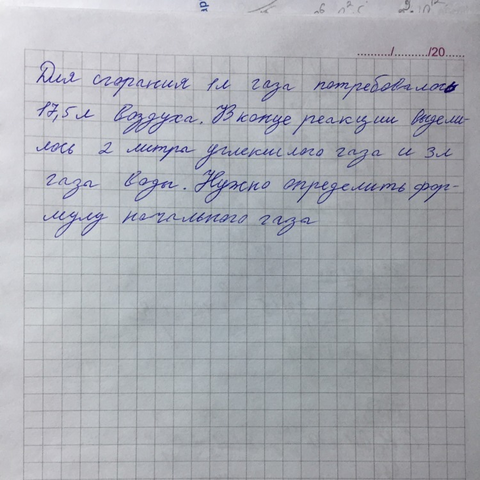 ........../........../20......
Для сгорания 1л газа потребовалось
17,5л воздуха. В конце реакции выдели-
лось 2 литра углекислого газа и 3л
газа воды. Нужно определить фор-
мулу начального газа